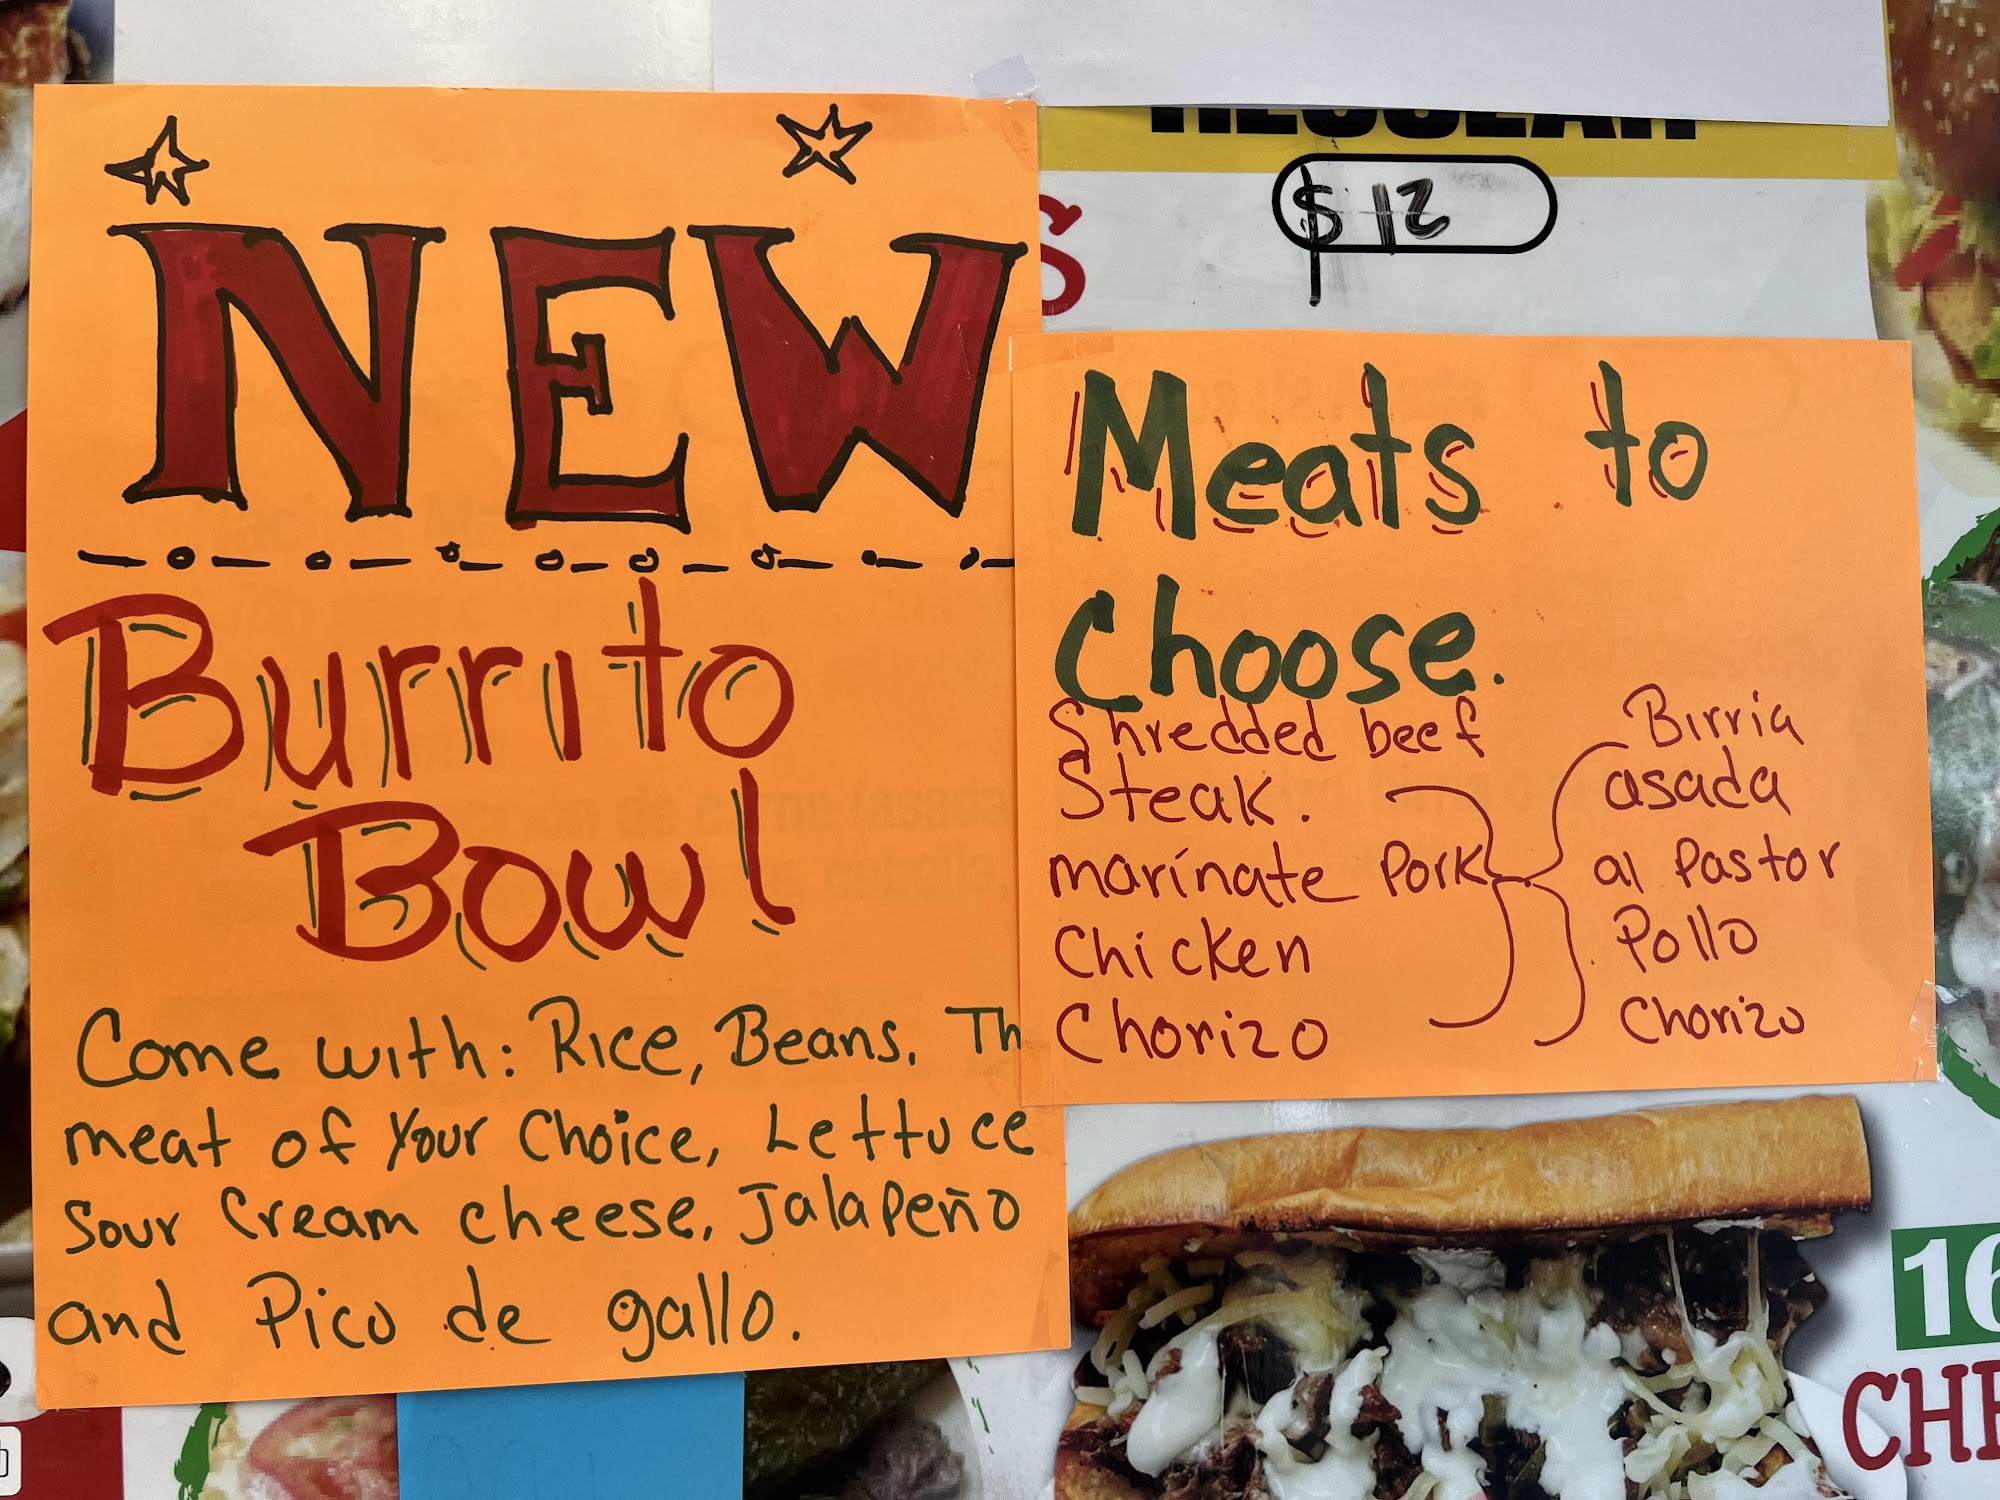 NEW
Burrito
Bowl
Come with: Rice, Beans. Th
meat of Your Choice, Lettuce
Sour Cream cheese, Jalapeño
and Pico de gallo.
REGULAR
$12
S
Meats to
Choose.
Shredded beef Birria
Steak. asada
marinate Pork al Pastor
Chicken Pollo
Chorizo Chorizo
16
CHE